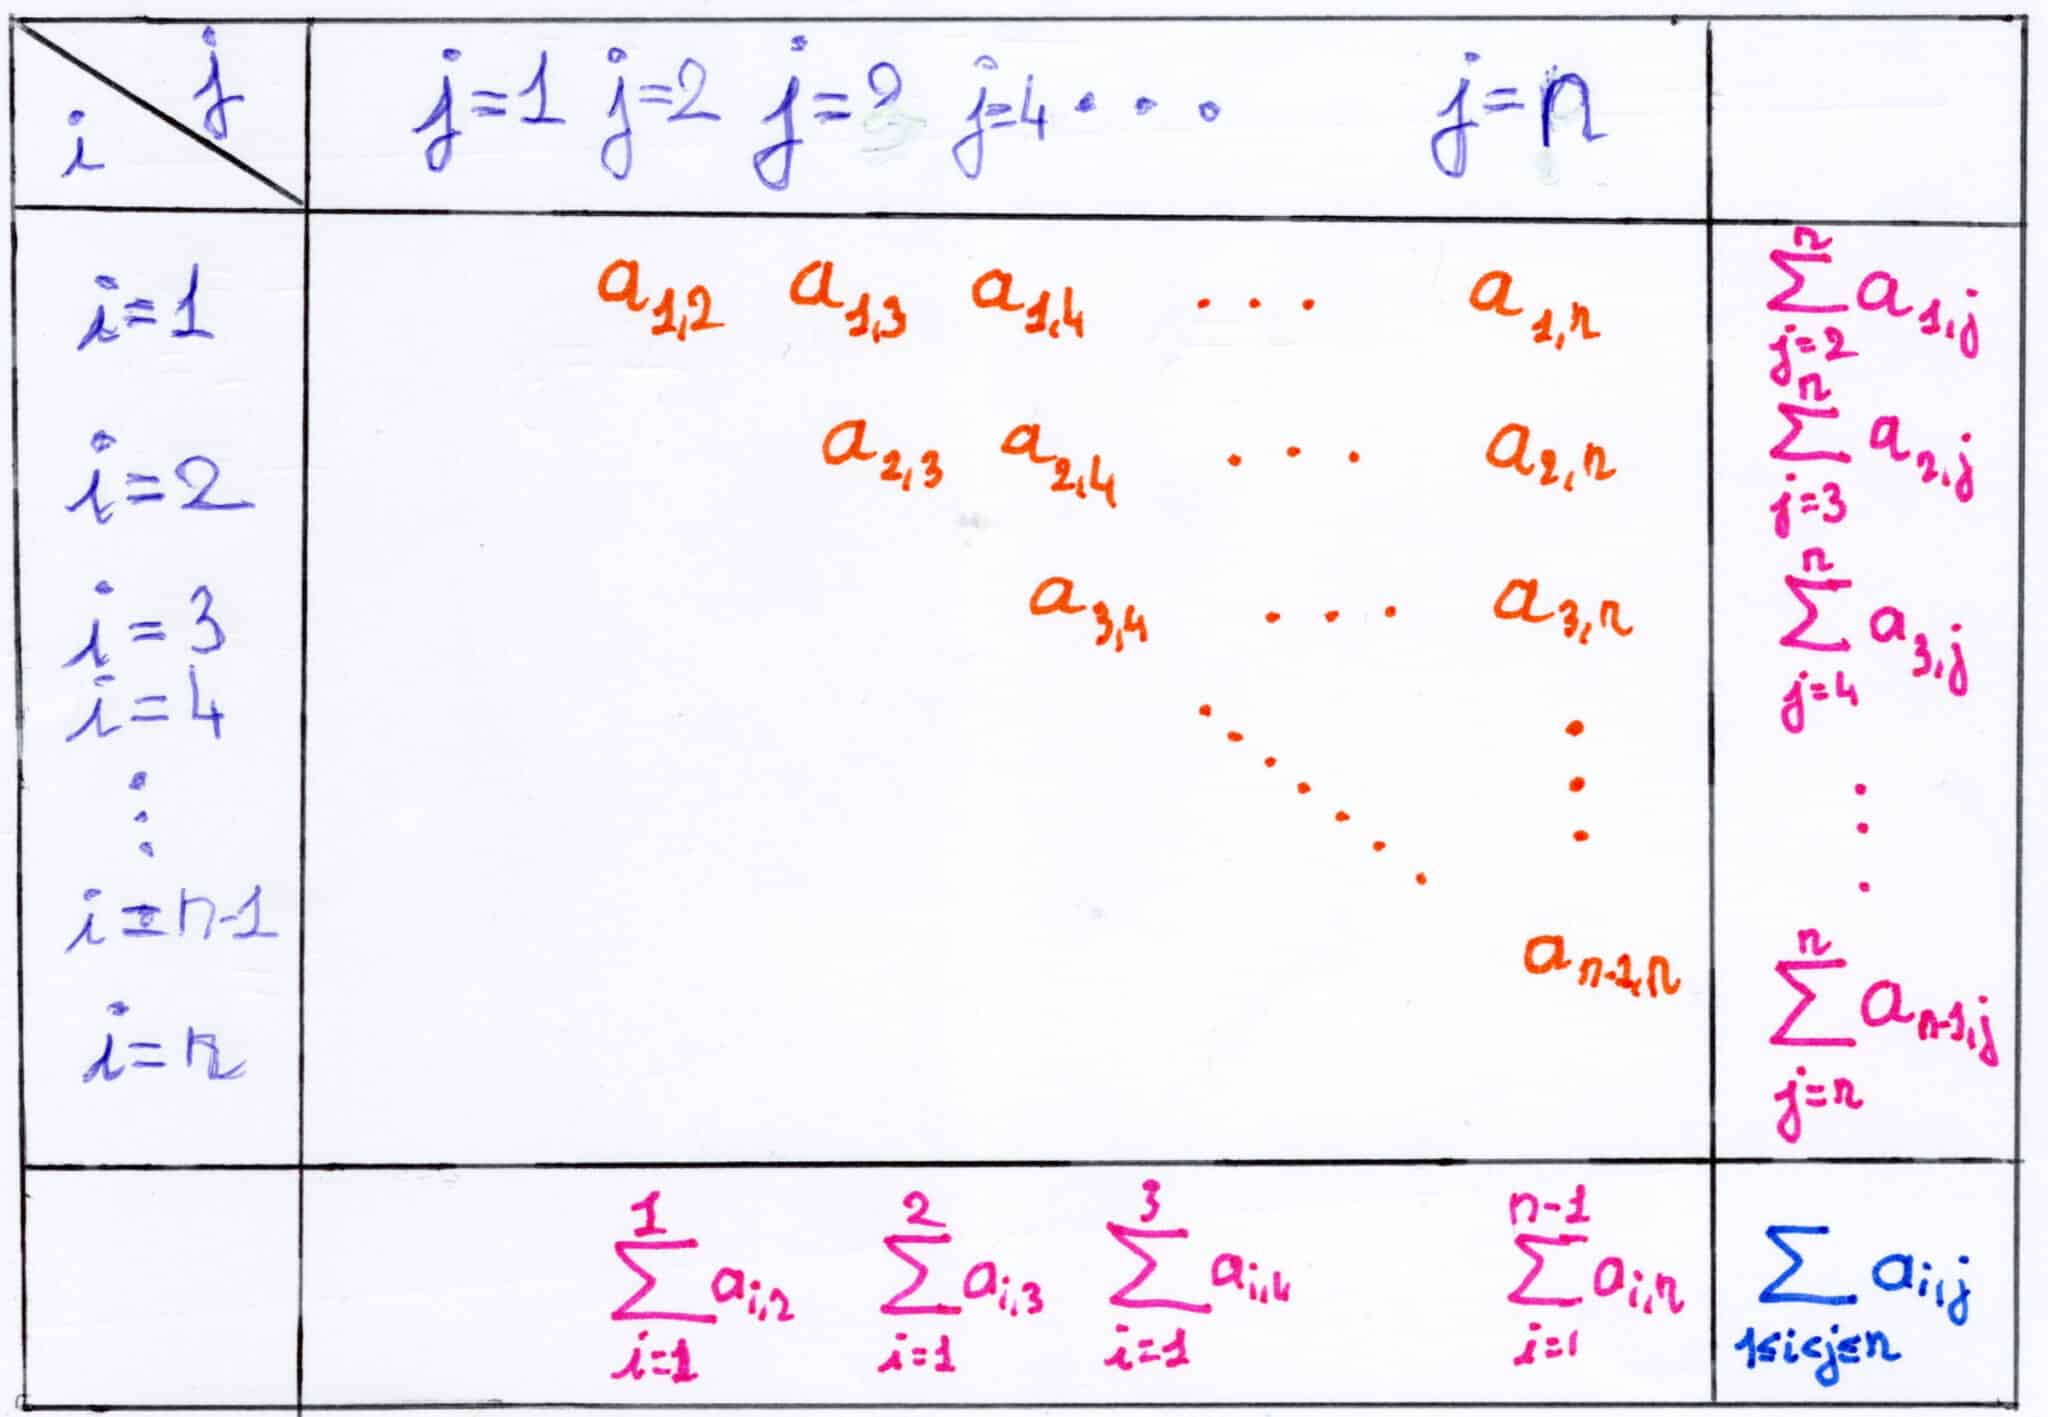 i j j=1 j=2 j=3 j=4 . . . j=n
i=1 a_{1,2} a_{1,3} a_{1,4} . . . a_{1,n} \sum_{j=2}^{n} a_{1,j}
i=2 a_{2,3} a_{2,4} . . . a_{2,n} \sum_{j=3}^{n} a_{2,j}
i=3 a_{3,4} . . . a_{3,n} \sum_{j=4}^{n} a_{3,j}
i=4
i=n-1 a_{n-1,n} \sum_{j=n}^{n} a_{n-1,j}
i=n
\sum_{i=1}^{1} a_{i,2} \sum_{i=1}^{2} a_{i,3} \sum_{i=1}^{3} a_{i,4} \sum_{i=1}^{n-1} a_{i,n} \sum_{1≤i<j≤n} a_{i,j}